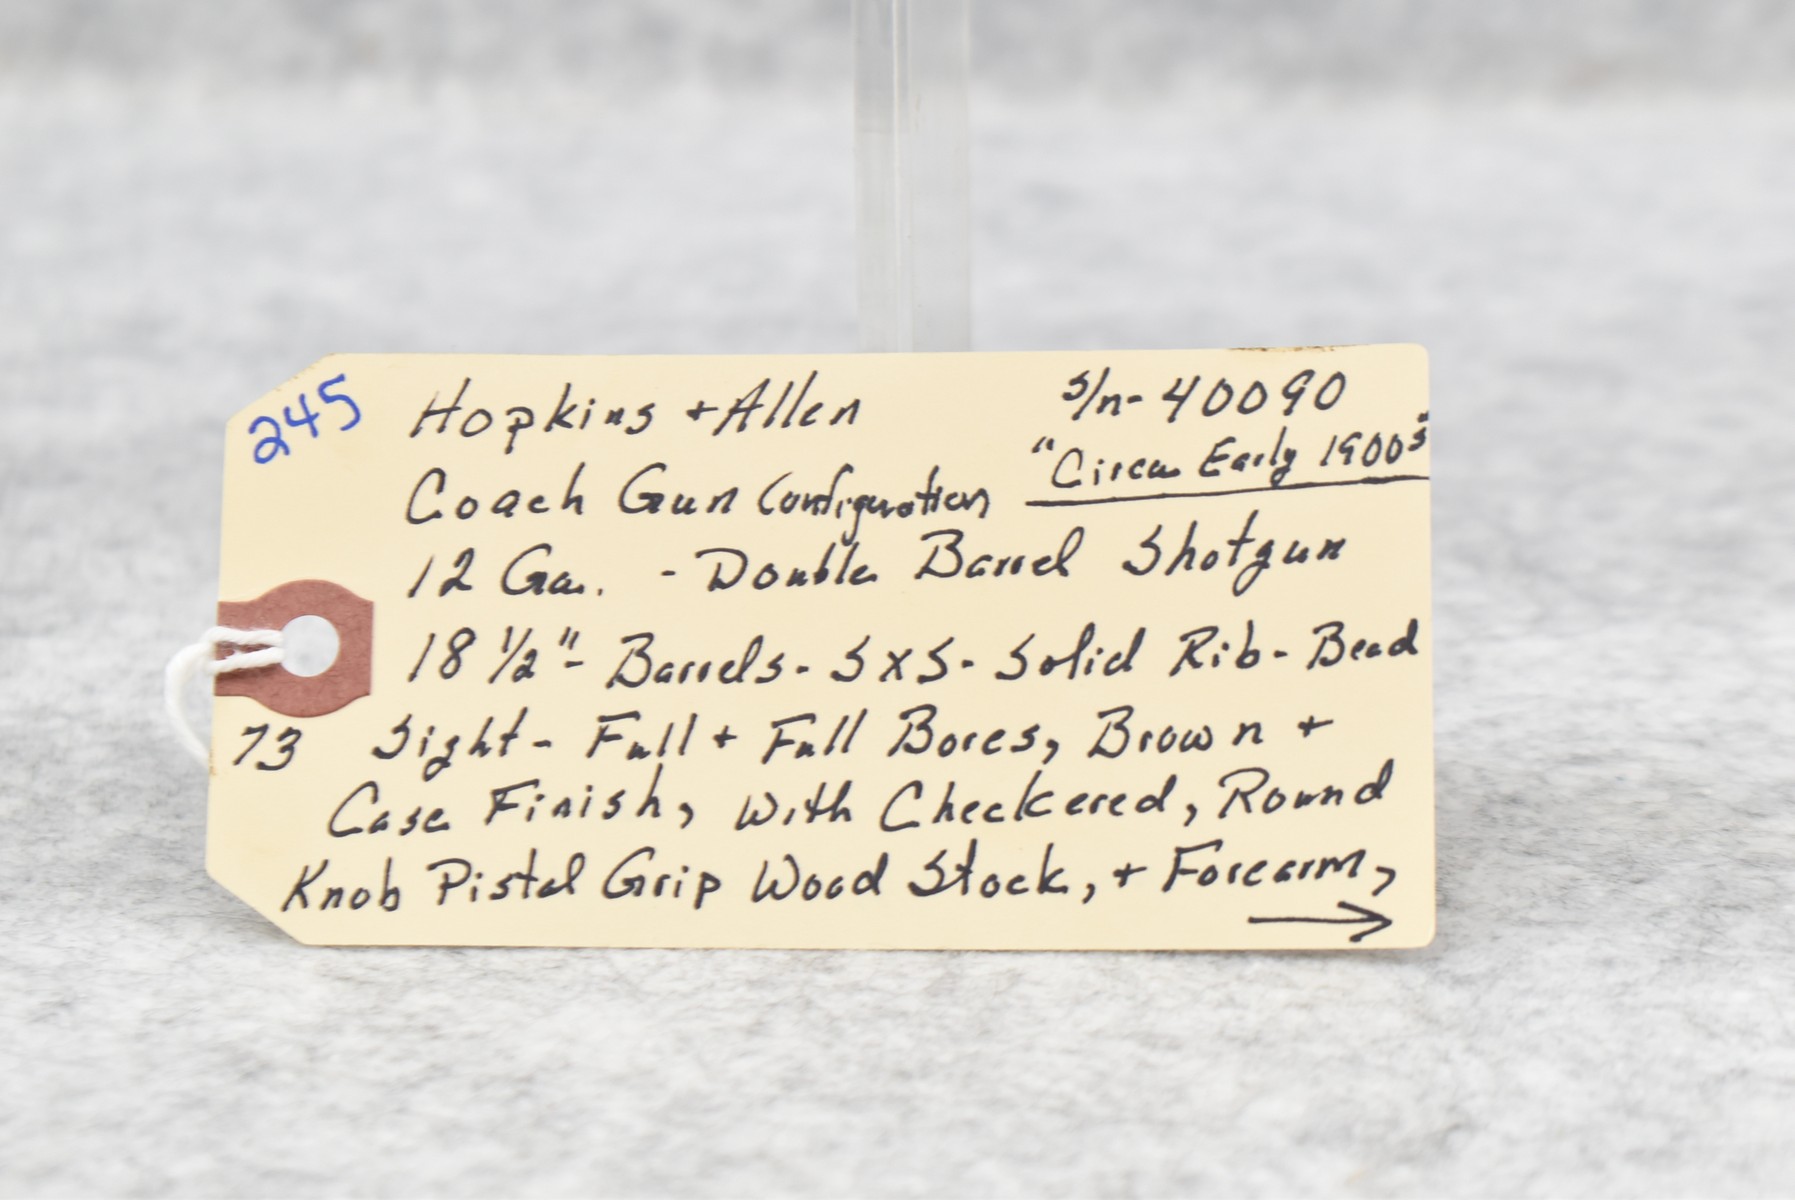 245
Hopkins + Allen s/n- 40090
Coach Gun Configuration "Circa Early 1900s"
12 Ga. - Double Barrel Shotgun
18 1/2"- Barrels - SxS - Solid Rib - Bead
73 Sight - Full + Full Bores, Brown +
Case Finish, With Checkered, Round
Knob Pistol Grip Wood Stock, + Forearm,
→